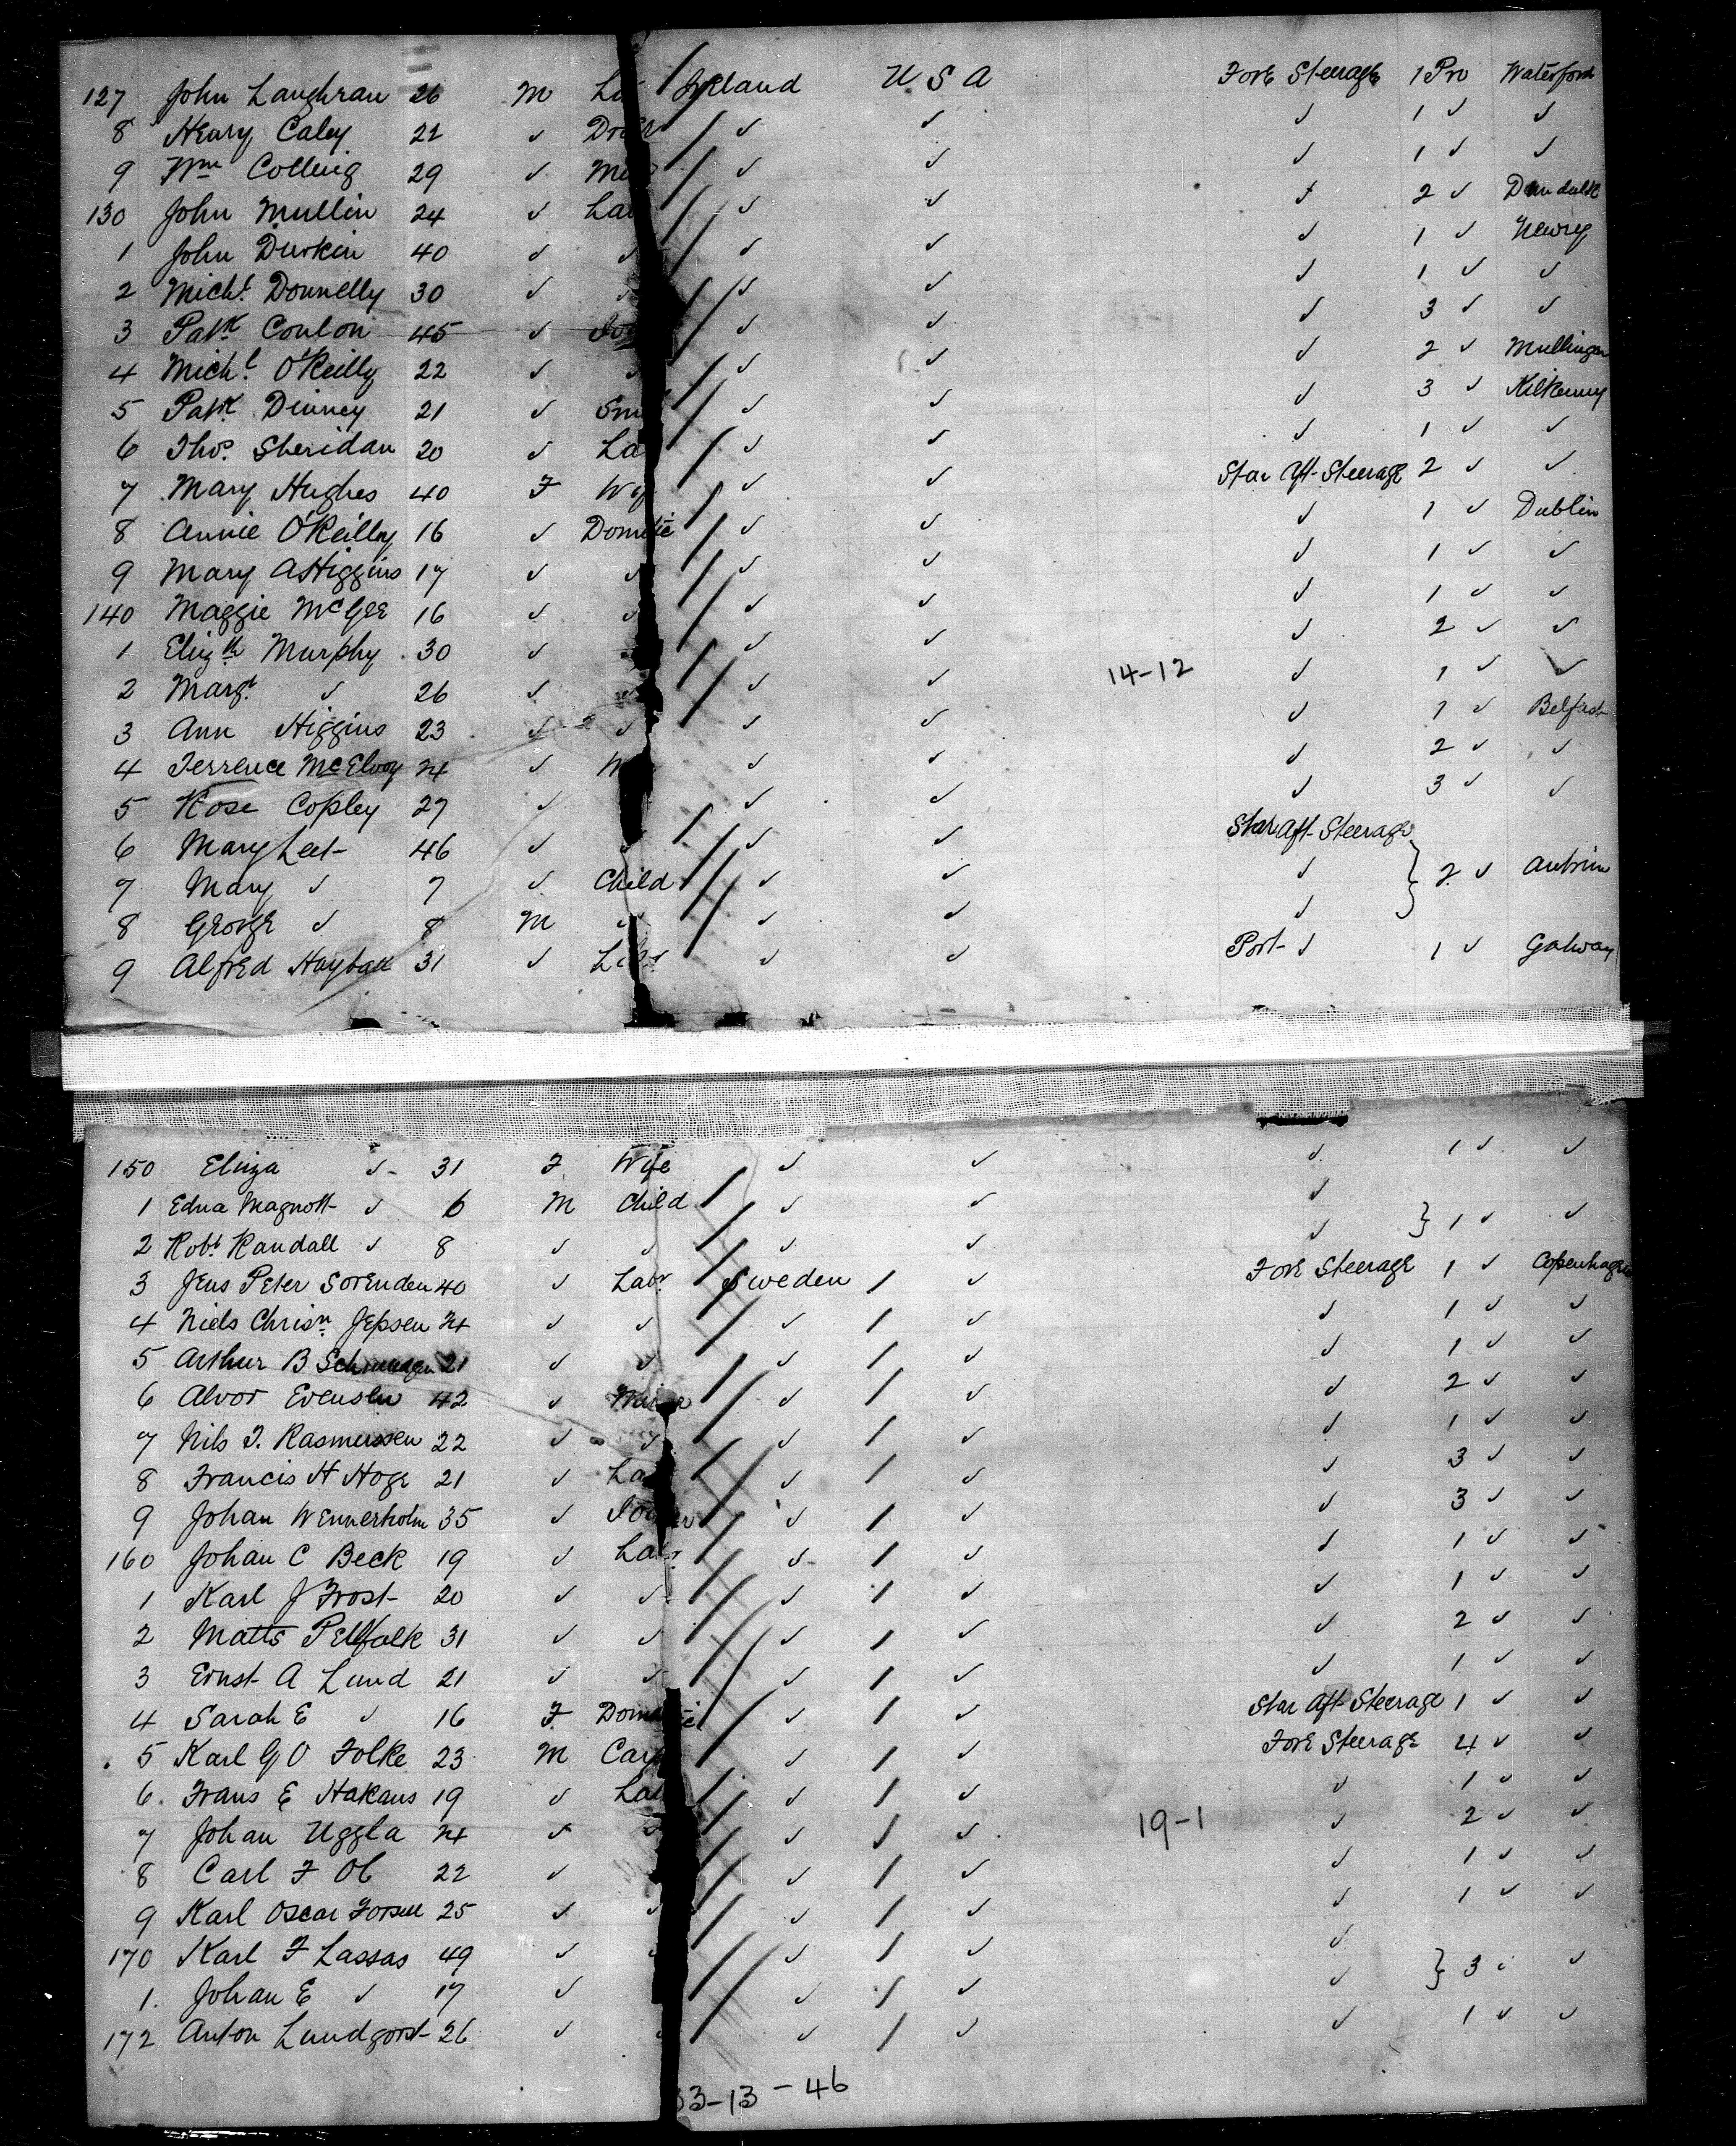 127 John Laughran 26 M La Ireland U S A Fore Steerage 1 Pro Waterford
8 Henry Caley 21 ✓ ✓ ✓ ✓ 1 ✓ ✓
9 Wm Colling 29 ✓ ✓ ✓ ✓ 1 ✓ ✓
130 John Mullin 24 ✓ Lab ✓ ✓ ✓ 2 ✓ Dundalk
1 John Durkin 40 ✓ ✓ ✓ ✓ ✓ 1 ✓ Newry
2 Michl Donnelly 30 ✓ ✓ ✓ ✓ 1 ✓ ✓
3 Patk Conlon 45 ✓ ✓ ✓ ✓ 3 ✓ ✓
4 Michl O'Reilly 22 ✓ ✓ ✓ ✓ ✓ 2 ✓ Mullingar
5 Patk Dinney 21 ✓ Sm ✓ ✓ ✓ 3 ✓ Kilkenny
6 Thos Sheridan 20 ✓ La ✓ ✓ ✓ 1 ✓ ✓
7 Mary Hughes 40 F Wif ✓ ✓ Star Aft Steerage 2 ✓ ✓
8 Annie O'Reilly 16 ✓ Domtic ✓ ✓ ✓ 1 ✓ Dublin
9 Mary A Higgins 17 ✓ ✓ ✓ ✓ ✓ 1 ✓ ✓
140 Maggie McGee 16 ✓ ✓ ✓ ✓ ✓ 1 ✓ ✓
1 Elizth Murphy 30 ✓ ✓ ✓ ✓ 2 ✓ ✓
2 Margt ✓ 26 ✓ ✓ ✓ ✓ 14-12 ✓ 1 ✓ ✓
3 Ann Higgins 23 ✓ ✓ ✓ ✓ ✓ 1 ✓ Belfast
4 Terrence McElvoy 24 ✓ ✓ ✓ ✓ 2 ✓ ✓
5 Rose Copley 27 ✓ ✓ ✓ ✓ 3 ✓ ✓
6 Mary Leet 46 ✓ ✓ ✓ ✓ Star Aft Steerage
7 Mary ✓ 7 ✓ Child ✓ ✓ ✓ } 2 ✓ Antrim
8 George ✓ 8 M ✓ ✓ ✓ ✓
9 Alfred Hayball 31 ✓ Labr ✓ ✓ Port ✓ 1 ✓ Galway
150 Eliza ✓ 31 F Wife ✓ ✓ ✓ 1 ✓ ✓
1 Edna Magnott ✓ 6 M Child ✓ ✓ ✓
2 Robt Randall ✓ 8 ✓ ✓ ✓ ✓ ✓ } 1 ✓ ✓
3 Jens Peter Sorenden 40 ✓ Labr Sweden ✓ Fore Steerage 1 ✓ Copenhagen
4 Niels Chrisn Jepsen 24 ✓ ✓ ✓ ✓ ✓ 1 ✓ ✓
5 Arthur B 21 ✓ ✓ ✓ ✓ ✓ 1 ✓ ✓
6 Alvor Evensen 42 ✓ Miner ✓ ✓ ✓ 2 ✓ ✓
7 Nils T. Rasmussen 22 ✓ ✓ ✓ ✓ ✓ 1 ✓ ✓
8 Francis H Hoge 21 ✓ La ✓ ✓ ✓ 3 ✓ ✓
9 Johan Wennerholm 35 ✓ ✓ ✓ ✓ 3 ✓ ✓
160 Johan C Beck 19 ✓ Labr ✓ ✓ ✓ 1 ✓ ✓
1 Karl J Frost 20 ✓ ✓ ✓ ✓ ✓ 1 ✓ ✓
2 Matts Pellfolk 31 ✓ ✓ ✓ ✓ ✓ 2 ✓ ✓
3 Ernst A Lund 21 ✓ ✓ ✓ ✓ ✓ 1 ✓ ✓
4 Sarah E ✓ 16 F Domtic ✓ ✓ Star Aft Steerage 1 ✓ ✓
5 Karl G O Folke 23 M Carp ✓ ✓ Fore Steerage 4 ✓ ✓
6 Frans E Hakans 19 ✓ Lab ✓ ✓ ✓ 1 ✓ ✓
7 Johan Uggla 24 ✓ ✓ ✓ ✓ 19-1 ✓ 2 ✓ ✓
8 Carl F Ol 22 ✓ ✓ ✓ ✓ 1 ✓ ✓
9 Karl Oscar Forsell 25 ✓ ✓ ✓ ✓ ✓ 1 ✓ ✓
170 Karl F Lassas 49 ✓ ✓ ✓ ✓
1 Johan E ✓ 17 ✓ ✓ ✓ ✓ } 3 ✓ ✓
172 Anton Lundgorst 26 ✓ ✓ ✓ ✓ 1 ✓ ✓
33-13-46